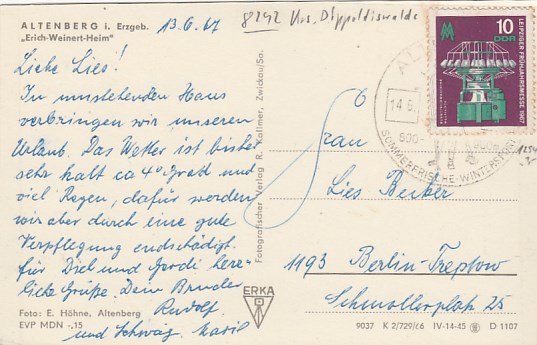 ALTENBERG i. Erzgeb.
„Erich-Weinert-Heim"
13.6.67
8242 Krs. Dippoldiswalde
Liebe Lies!
In umstehenden Haus
verbringen wir unseren
Urlaub. Das Wetter ist bisher
sehr kalt ca 4° grad und
viel Regen, dafür werden
wir aber durch eine gute
Verpflegung entschädigt.
für Dich und Gerdi herz-
liche Grüße. Dein Bruder
Rudolf
und Schwäg.
Foto: E. Höhne, Altenberg
EVP MDN -,15
Fotografischer Verlag R. Kallmer, Zwickau/Sa.
ERKA
10
DDR
LEIPZIGER FRÜHJAHRSMESSE 1967
14.6.
SOMMERFRISCHE-WINTERSPORT
Frau
Lies Becker
1193 Berlin-Treptow
Schmollerplatz 25
9037 K 2/729/66 IV-14-45 D 1107